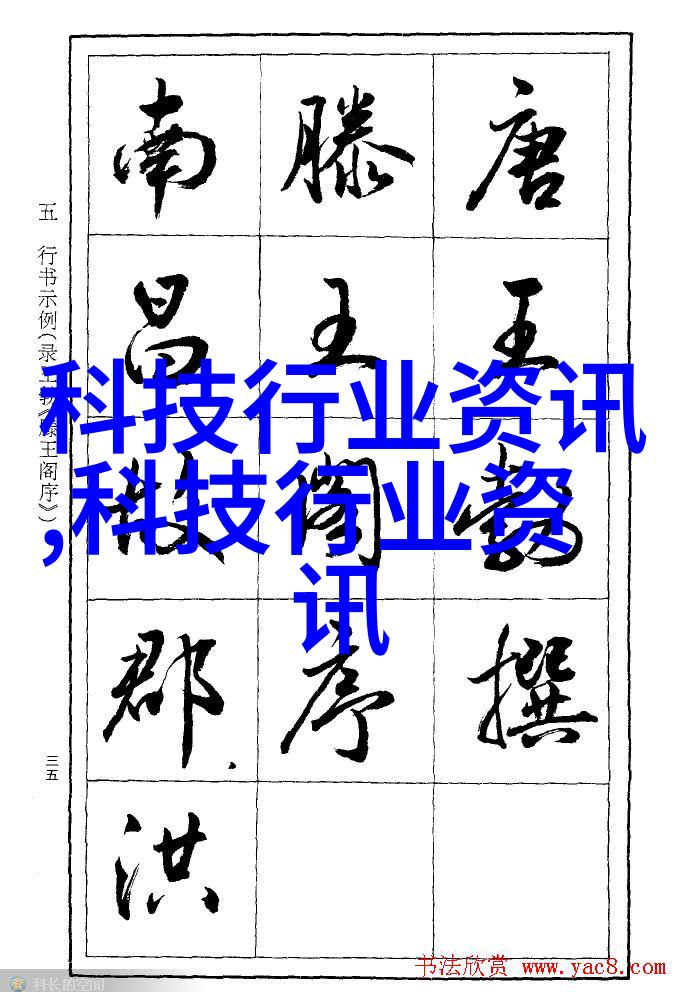 唐王勃撰
滕王阁序
南昌故郡洪
五 行书示例(录王勃《滕王阁序》)
三五
科技行业资讯
,科技行业资
讯
书法欣赏 www.yac8.com
科长的空间